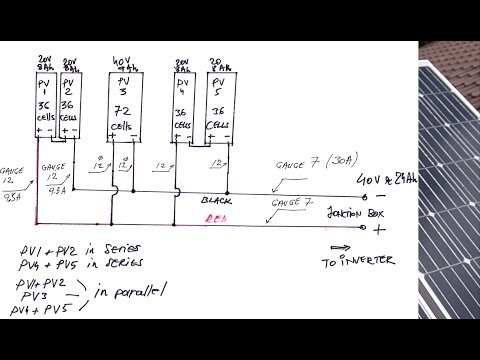 20V 20V 40V 20V 20
8Ah 8Ah 8Ah 8Ah
PV 1 36 CELLS
PV 2 36 CELLS
PV 3 72 CELLS
PV 4 36 CELLS
PV 5 36 CELLS
+ - + - + - + - + -
GAUGE 12 9.5A
GAUGE 12 9.5A
12 12 12 12
GAUGE 7 (30A)
40V 24Ah
-
BLACK
GAUGE 7
JONCTION BOX
RED
+
PV1 + PV2 in SERIES
PV4 + PV5 in SERIES
⇒
TO INVERTER
PV1+PV2
PV3
PV4+PV5
in parallel